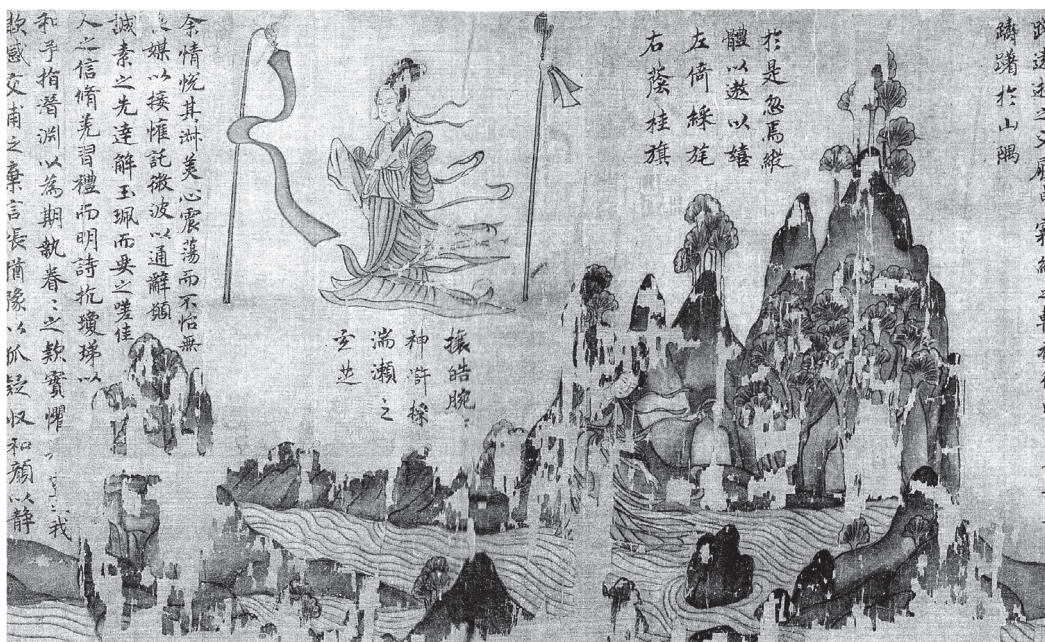 遠遊之文履曳霧綃之輕裾
躊躇於山隅
於是忽焉縱
體以遨以嬉
左倚綵旄
右蔭桂旗
攘皓腕
神滸採
湍瀨之
玄芝
余情悅其淑美心震蕩而不怡無
媒以接懽託微波以通辭願
誠素之先達解玉珮而要之嗟佳
人之信脩羌習禮而明詩抗瓊珶以
和予指潛淵以為期執眷〻之款實懼之我
欺感交甫之棄言悵猶豫以狐疑收和顏以靜